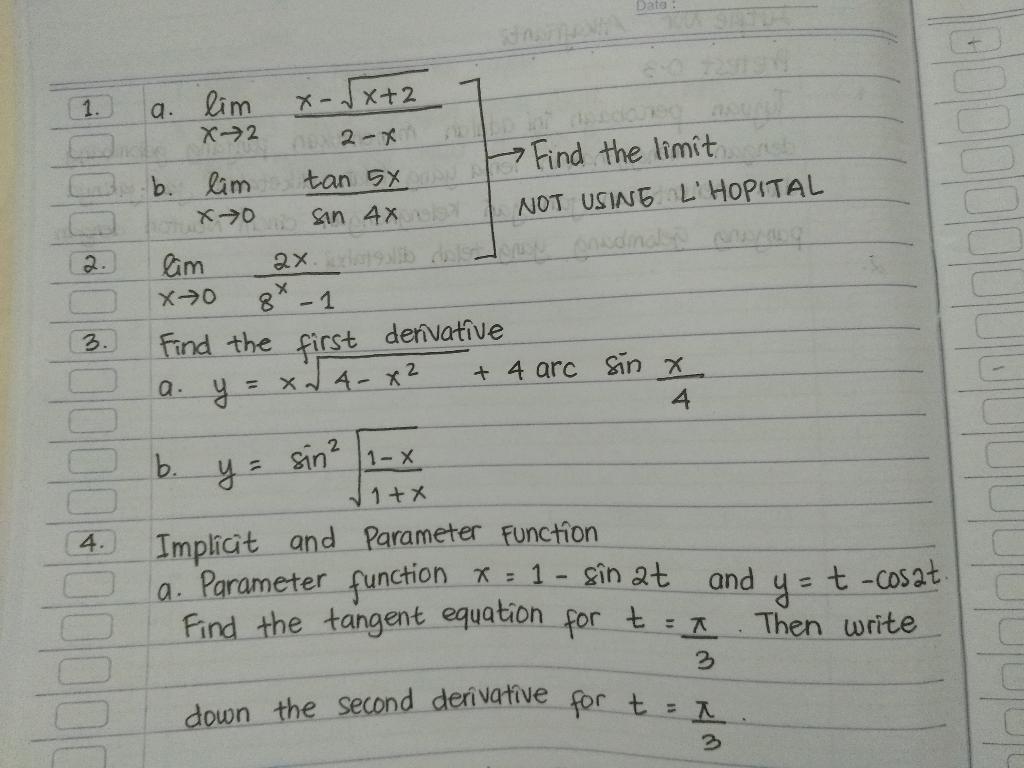 Date :
1. a. lim x - √x+2
x→2 2 - x
→ Find the limit
b. lim tan 5x
x→0 sin 4x
NOT USING L'HOPITAL
2. lim 2x
x→0 8^x - 1
3. Find the first derivative
a. y = x √4 - x² + 4 arc sin x/4
b. y = sin² √1-x/1+x
4. Implicit and Parameter Function
a. Parameter function x = 1 - sin 2t and y = t - cos2t.
Find the tangent equation for t = π/3. Then write
down the second derivative for t = π/3.